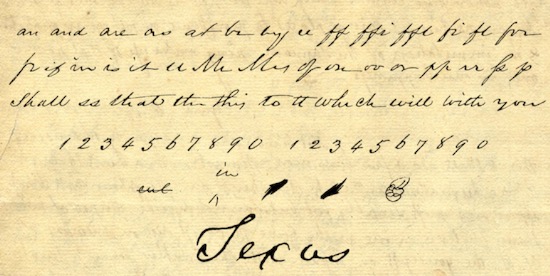 an and are as at be by ee ff ffi ffl fi fl for
fr if in is it ll Mr Mrs of on oo or pp rr
Shall ss that the this to tt which will with you
1 2 3 4 5 6 7 8 9 0 1 2 3 4 5 6 7 8 9 0
in
^
Texas